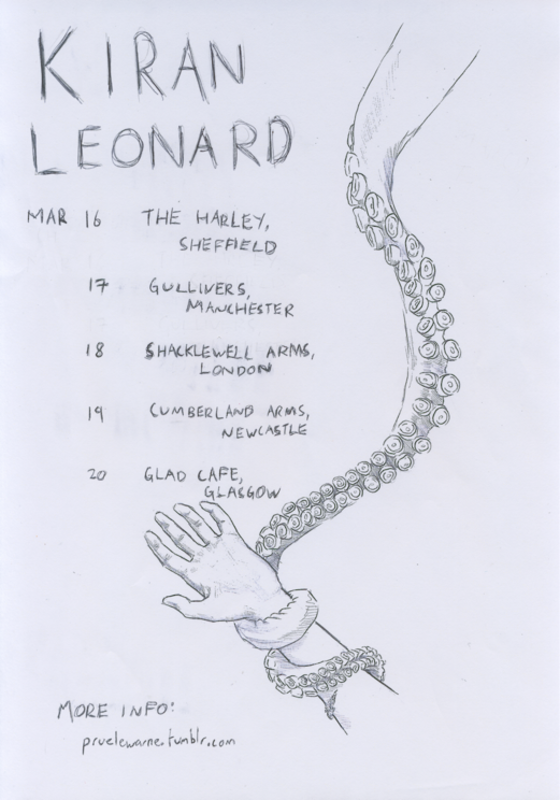 KIRAN
LEONARD
MAR 16 THE HARLEY,
SHEFFIELD
17 GULLIVERS,
MANCHESTER
18 SHACKLEWELL ARMS,
LONDON
19 CUMBERLAND ARMS,
NEWCASTLE
20 GLAD CAFE,
GLASGOW
MORE INFO:
pruelewarne.tumblr.com